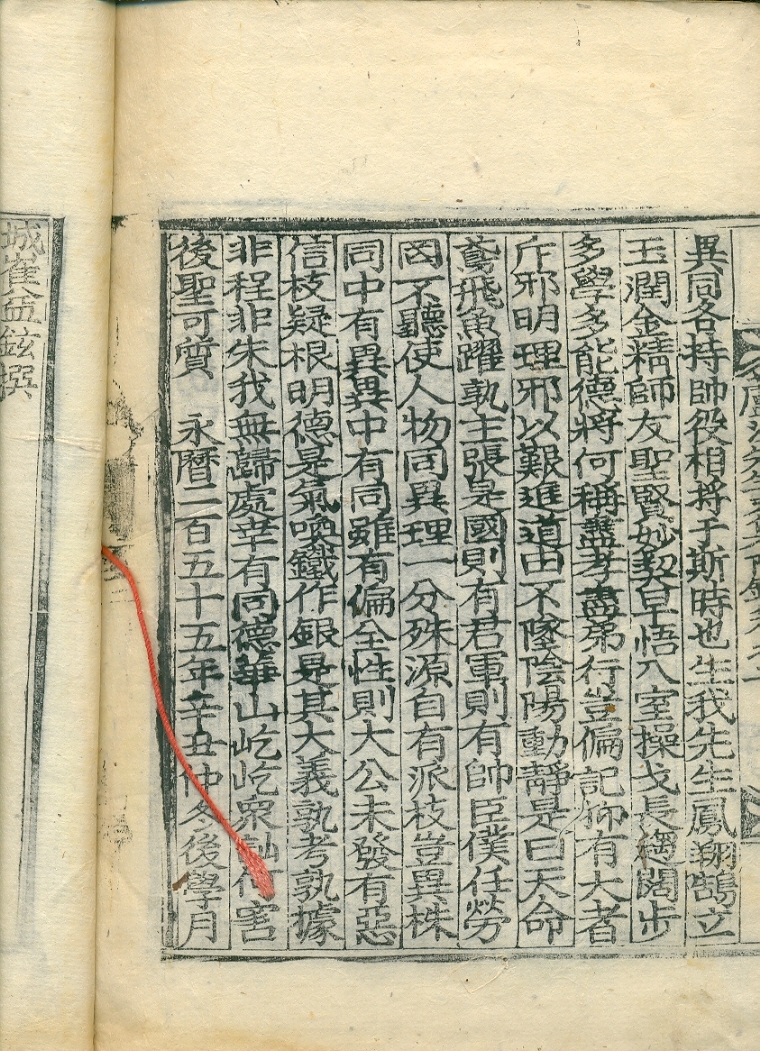 異同各持帥役相將于斯時也生我先生鳳翔鵠立
玉潤金精師友聖賢妙契早悟入室操戈長綯闊步
多學多能德將何稱盡孝盡弟行豈偏記抑有大者
斥邪明理邪以艱進道由不墜陰陽動靜是曰天命
鳶飛魚躍孰主張是國則有君軍則有帥臣僕任勞
罔不聽使人物同異理一分殊源自有派枝豈異株
同中有異異中有同雖有偏全性則大公未發有惡
信枝疑根明德是氣喚鐵作銀是其大義孰考孰據
非程非朱我無歸處幸有同德華山屹屹衆訕何害
後聖可質 永曆二百五十五年辛丑仲冬後學月
城崔益鉉撰